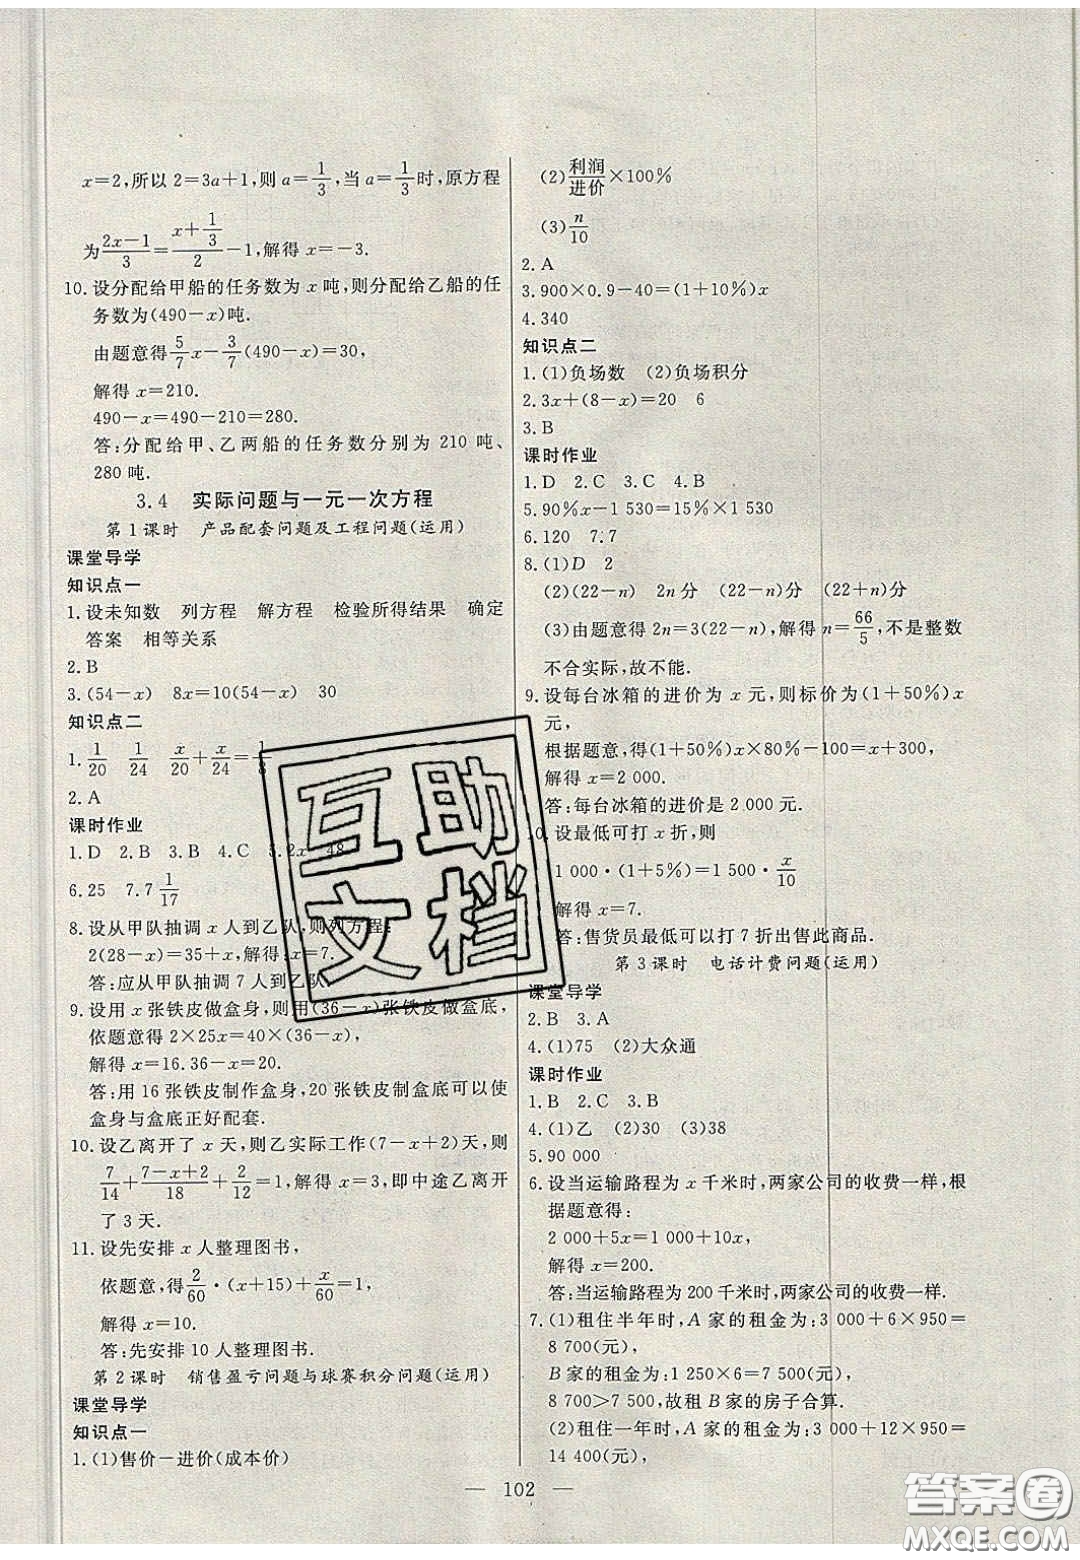 x=2,所以 2=3a+1,则 a=1/3,当 a=1/3时,原方程
为(2x-1)/3=(x+1/3)/2-1,解得 x=-3.
10.设分配给甲船的任务数为 x 吨,则分配给乙船的任
务数为(490-x)吨.
由题意得5/7x-3/7(490-x)=30,
解得 x=210.
490-x=490-210=280.
答:分配给甲、乙两船的任务数分别为 210 吨、
280 吨.
3.4 实际问题与一元一次方程
第1课时 产品配套问题及工程问题(运用)
课堂导学
知识点一
1.设未知数 列方程 解方程 检验所得结果 确定
答案 相等关系
2.B
3.(54-x) 8x=10(54-x) 30
知识点二
1.1/20 1/24 x/20+x/24=1/8
2.A
课时作业
1.D 2.B 3.B 4.C 5.2x 48
6.25 7.7 1/17
8.设从甲队抽调 x 人到乙队,则列方程:
2(28-x)=35+x,解得 x=7.
答:应从甲队抽调 7 人到乙队.
9.设用 x 张铁皮做盒身,则用(36-x)张铁皮做盒底,
依题意得 2×25x=40×(36-x),
解得 x=16.36-x=20.
答:用 16 张铁皮制作盒身,20 张铁皮制盒底可以使
盒身与盒底正好配套.
10.设乙离开了 x 天,则乙实际工作(7-x+2)天,则
7/14+(7-x+2)/18+2/12=1,解得 x=3,即中途乙离开
了 3 天.
11.设先安排 x 人整理图书,
依题意,得2/60·(x+15)+x/60=1,
解得 x=10.
答:先安排 10 人整理图书.
第2课时 销售盈亏问题与球赛积分问题(运用)
课堂导学
知识点一
1.(1)售价-进价(成本价)
(2)利润/进价×100%
(3)n/10
2.A
3.900×0.9-40=(1+10%)x
4.340
知识点二
1.(1)负场数 (2)负场积分
2.3x+(8-x)=20 6
3.B
课时作业
1.D 2.C 3.C 4.B
5.90%x-1 530=15%×1 530
6.120 7.7
8.(1)D 2
(2)(22-n) 2n分 (22-n)分 (22+n)分
(3)由题意得 2n=3(22-n),解得 n=66/5,不是整数
不合实际,故不能.
9.设每台冰箱的进价为 x 元,则标价为(1+50%)x
元,
根据题意,得(1+50%)x×80%-100=x+300,
解得 x=2 000.
答:每台冰箱的进价是 2 000 元.
10.设最低可打 x 折,则
1 000·(1+5%)=1 500·x/10
解得 x=7.
答:售货员最低可以打 7 折出售此商品.
第3课时 电话计费问题(运用)
课堂导学
2.B 3.A
4.(1)75 (2)大众通
课时作业
1.B 2.C 3.B
4.(1)乙 (2)30 (3)38
5.90 000
6.设当运输路程为 x 千米时,两家公司的收费一样,根
据题意得:
2 000+5x=1 000+10x,
解得 x=200.
答:当运输路程为 200 千米时,两家公司的收费一样.
7.(1)租住半年时,A 家的租金为:3 000+6×950=
8 700(元),
B 家的租金为:1 250×6=7 500(元),
8 700>7 500,故租 B 家的房子合算.
(2)租住一年时,A 家的租金为:3 000+12×950=
14 400(元),
互助
文档
— 102 —
答案圈
MXQE.COM